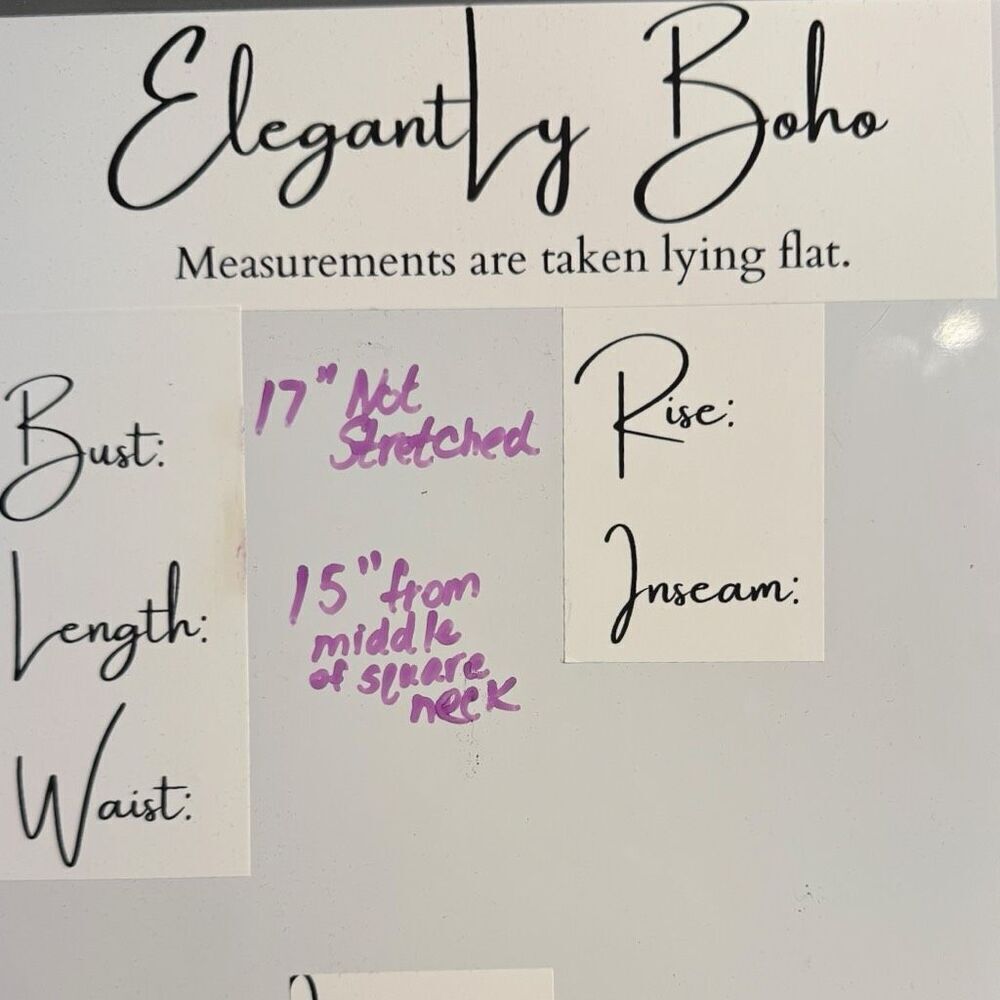 Elegantly Boho
Measurements are taken lying flat.
Bust:
17" Not
Stretched
Length:
15" from
middle
of square
neck
Waist:
Rise:
Inseam: